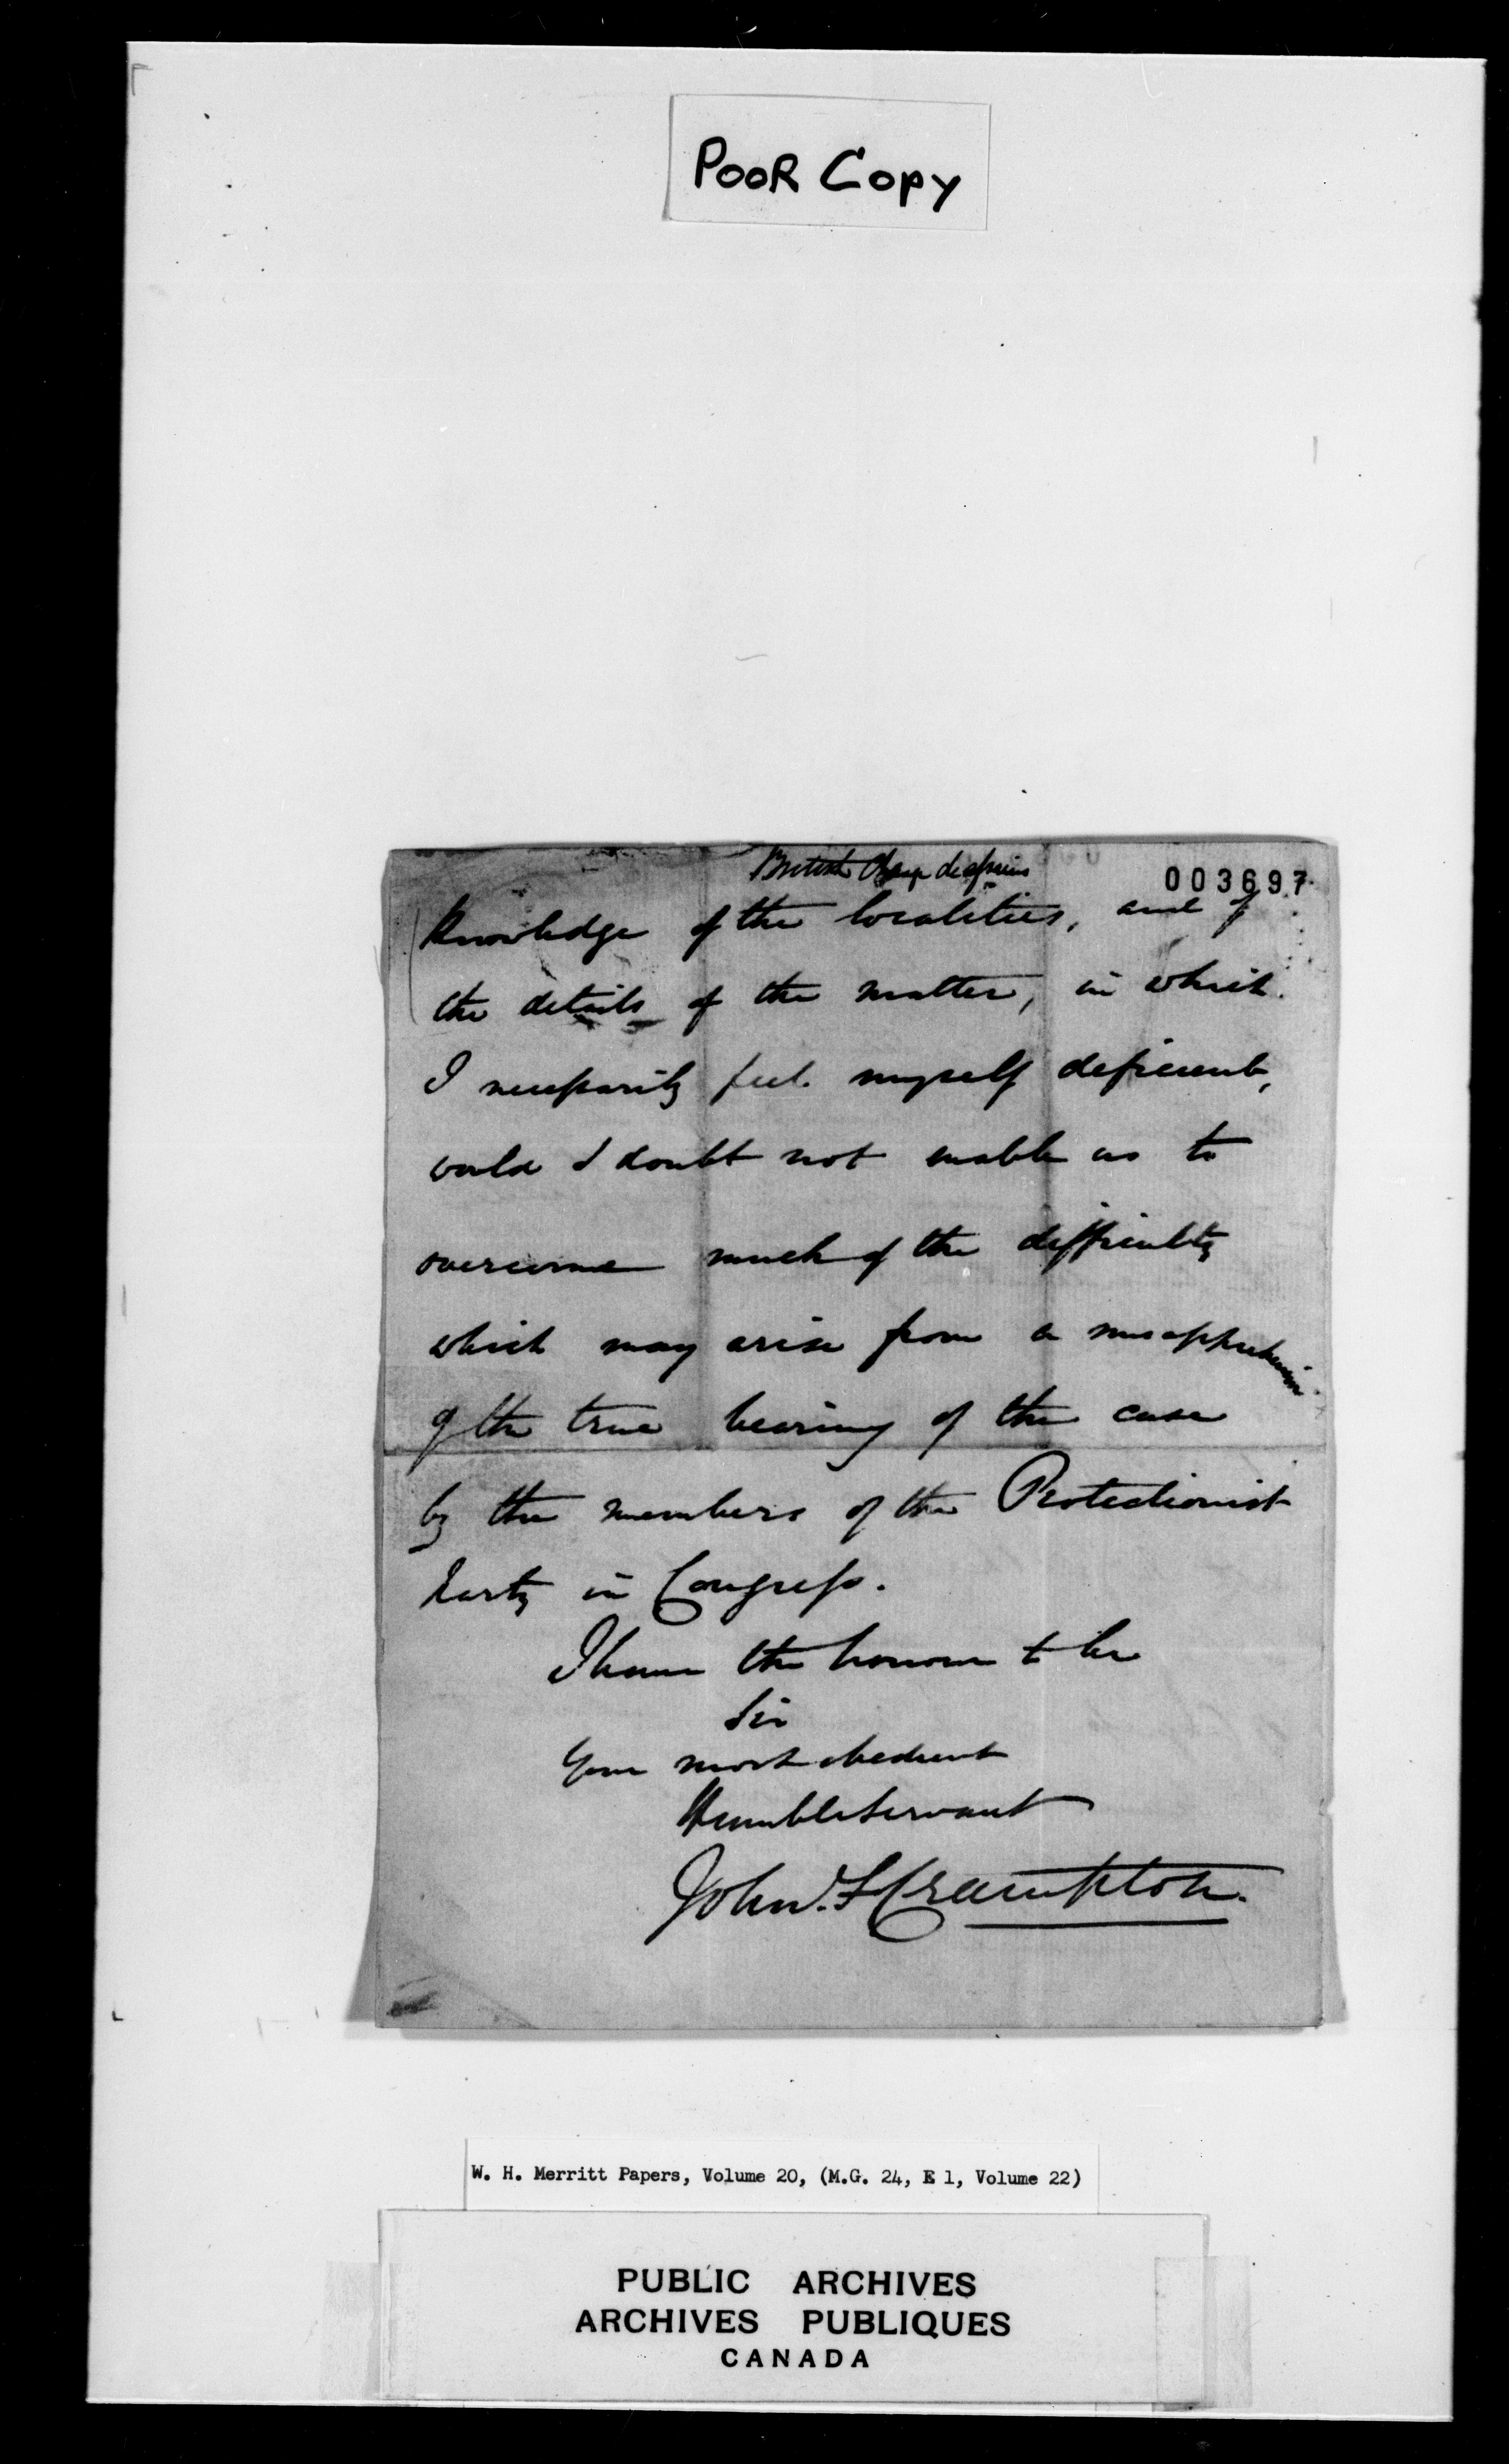 PooR Copy
British Charge deaffairs
003697
Knowledge of the localities, and of
the details of the matter, in which
I necessarily feel myself deficient,
would I doubt not enable us to
overcome much of the difficulty
which may arise from a misapprehension
of the true bearing of the case
by the members of the Protectionist
Party in Congress.
I have the honour to be
Sir
Your most obedient
Humble Servant
John. F Crampton.
W. H. Merritt Papers, Volume 20, (M.G. 24, E 1, Volume 22)
PUBLIC ARCHIVES
ARCHIVES PUBLIQUES
CANADA